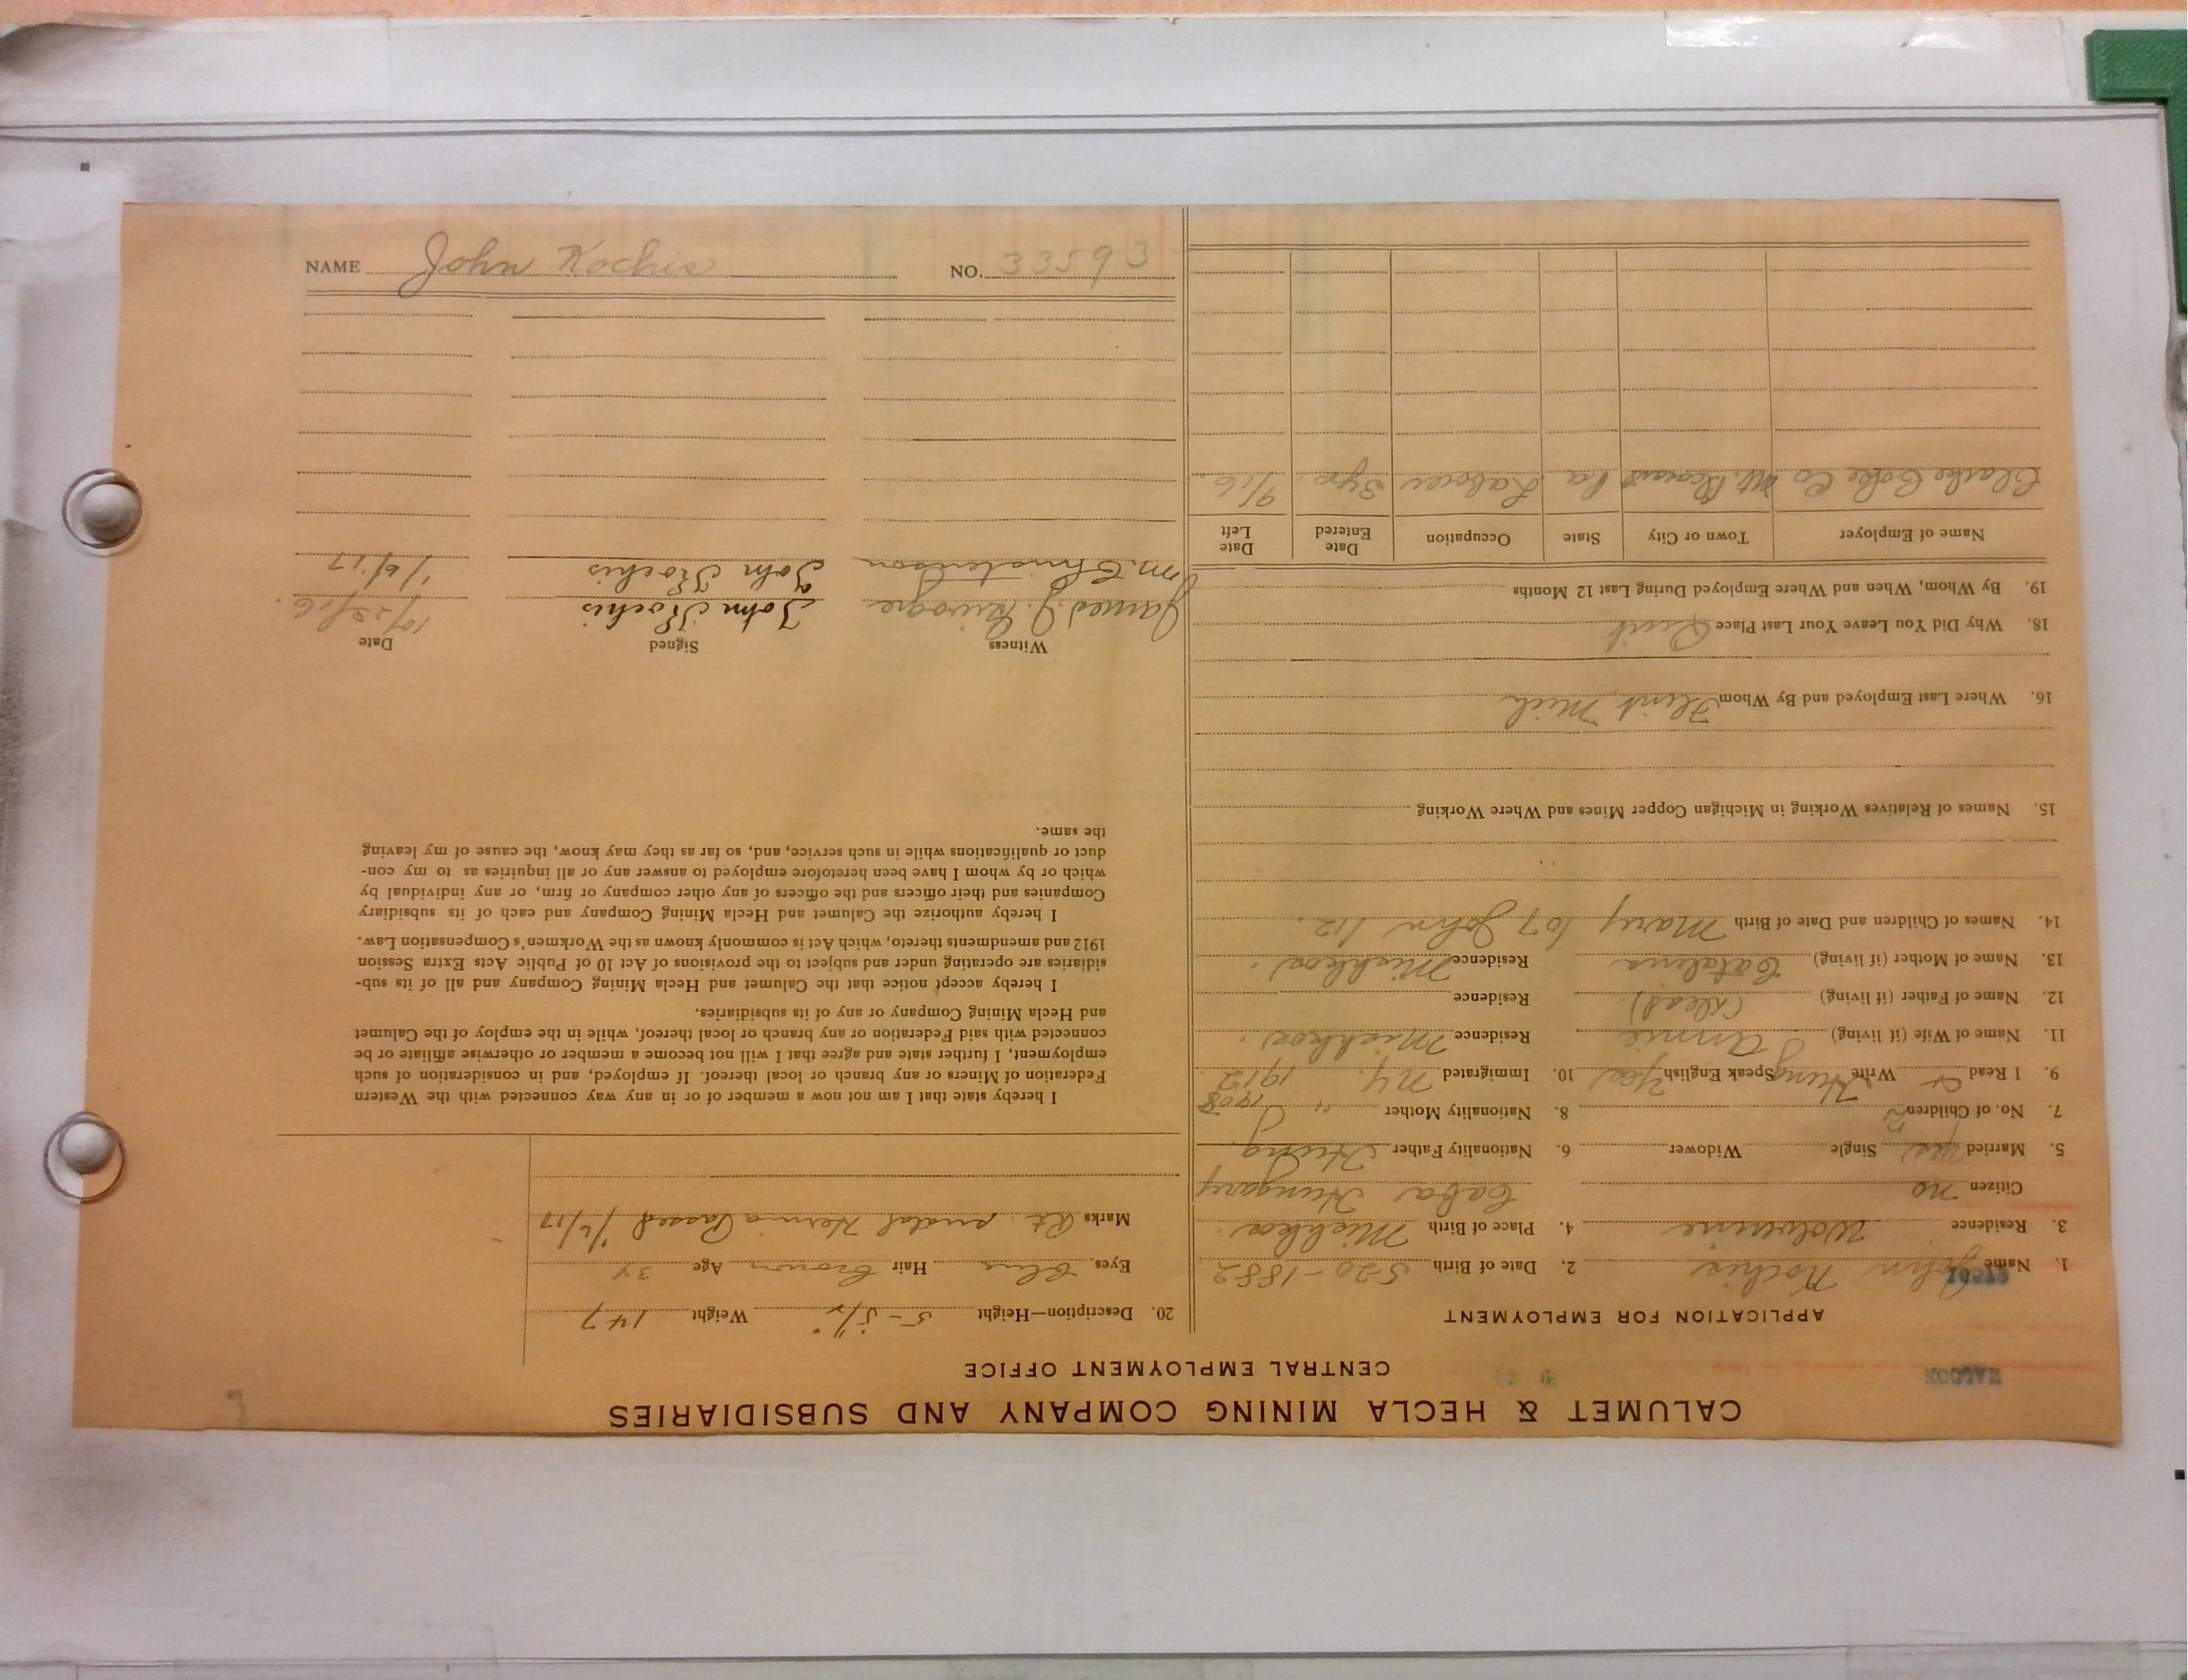 CALUMET & HECLA MINING COMPANY AND SUBSIDIARIES
CENTRAL EMPLOYMENT OFFICE
APPLICATION FOR EMPLOYMENT
1. Name John Kochis 2. Date of Birth 5-20-1882
3. Residence Wolverine 4. Place of Birth Mishkos
Citizen no Caba Hungary
5. Married yes Single Widower 6. Nationality Father Hung
7. No. of Children 2 8. Nationality Mother " 1908
9. I Read & Write Hung Speak English yes 10. Immigrated N.Y. 1912
11. Name of Wife (if living) Annie Residence Mishkos
12. Name of Father (if living) (dead) Residence
13. Name of Mother (if living) Residence Mishkos
14. Names of Children and Date of Birth Mary 107 John 112.
15. Names of Relatives Working in Michigan Copper Mines and Where Working
16. Where Last Employed and By Whom Flint Mich
18. Why Did You Leave Your Last Place Quit
19. By Whom, When and Where Employed During Last 12 Months
Name of Employer Town or City State Occupation Date Entered Date Left
Coke Co Mt. Pleasant Pa Laborer 3 yrs. 9/16.
20. Description—Height 5-5 1/2" Weight 147
Eyes, blue Hair brown Age 34
Marks Rt. Hernia Passed 1/6/17
I hereby state that I am not now a member of or in any way connected with the Western
Federation of Miners or any branch or local thereof. If employed, and in consideration of such
employment, I further state and agree that I will not become a member or otherwise affiliate or be
connected with said Federation or any branch or local thereof, while in the employ of the Calumet
and Hecla Mining Company or any of its subsidiaries.
I hereby accept notice that the Calumet and Hecla Mining Company and all of its sub-
sidiaries are operating under and subject to the provisions of Act 10 of Public Acts Extra Session
1912 and amendments thereto, which Act is commonly known as the Workmen's Compensation Law.
I hereby authorize the Calumet and Hecla Mining Company and each of its subsidiary
Companies and their officers and the officers of any other company or firm, or any individual by
which or by whom I have been heretofore employed to answer any or all inquiries as to my con-
duct or qualifications while in such service, and, so far as they may know, the cause of my leaving
the same.
Witness Signed Date
James J. John Kochis 10/23/16.
M. Christenson John Kochis 1/6/17
NAME John Kochis NO. 33593